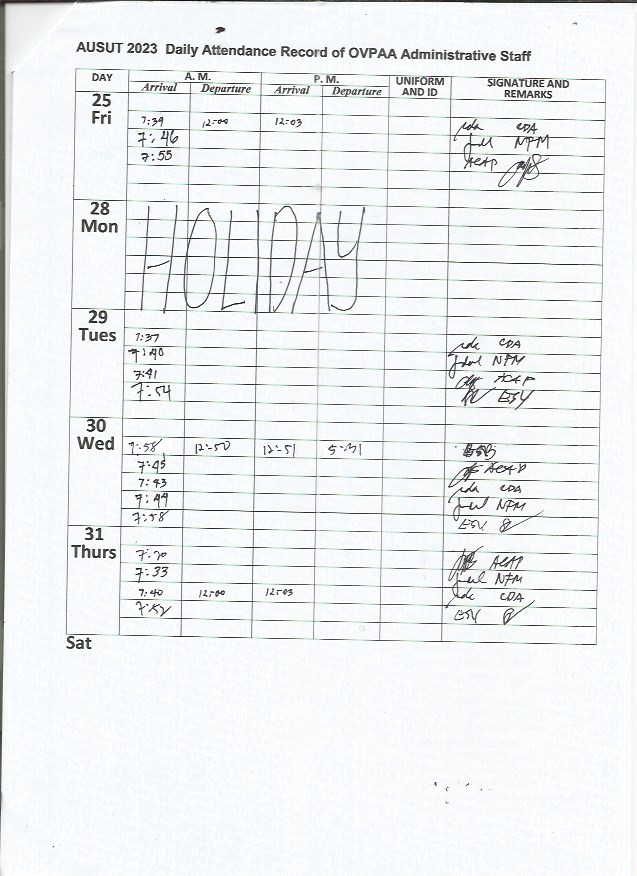 AUSUT 2023 Daily Attendance Record of OVPAA Administrative Staff
DAY A. M. P. M. UNIFORM AND ID SIGNATURE AND REMARKS
Arrival Departure Arrival Departure
25 Fri
7:39 12:00 12:03 CDA
7:46 NFM
7:55 ACAP
28 Mon
HOLIDAY
29 Tues
7:37 CDA
7:40 NFM
7:41 ACAP
7:54 ESY
30 Wed
7:58 12:50 12:51 5:31
7:45 ACAP
7:43 CDA
7:44 NFM
7:58 ESY
31 Thurs
7:20 ACAP
7:33 NFM
7:40 12:00 12:03 CDA
7:52 ESY
Sat